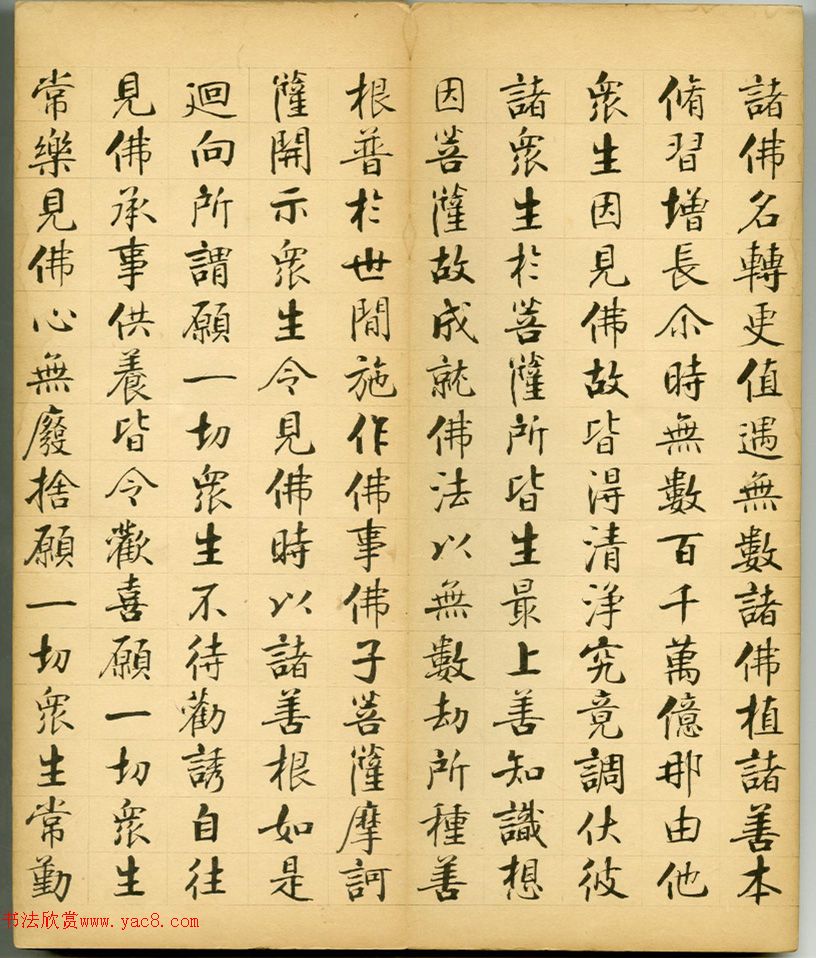 諸佛名轉更值遇無數諸佛植諸善本
脩習增長尒時無數百千萬億那由他
衆生因見佛故皆得清淨究竟調伏彼
諸衆生於菩薩所皆生最上善知識想
因菩薩故成就佛法以無數劫所種善
根普於世間施作佛事佛子菩薩摩訶
薩開示衆生令見佛時以諸善根如是
迴向所謂願一切衆生不待勸誘自往
見佛承事供養皆令歡喜願一切衆生
常樂見佛心無廢捨願一切衆生常勤
书法欣赏www.yac8.com